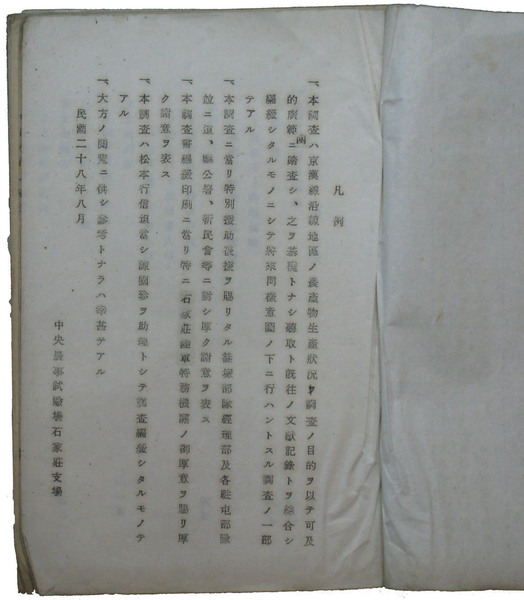 凡例
一、本調査ハ京漢線沿線地區ノ農産物生産狀況ヲ調査ノ目的ヲ以テ可及
的廣範ニ踏査シ、之ヲ基礎トナシ聽取ト既往ノ文獻記錄トヲ綜合シ
編纂シタルモノニシテ將來同樣意圖ノ下ニ行ハントスル調査ノ一部
テアル
一、本調査ニ當リ特別援助ヲ賜リタル部隊經理部及各駐屯部隊
竝ニ道、縣公署、新民會等ニ對シ厚ク謝意ヲ表ス
一、本調査書編纂印刷ニ當リ特ニ石家莊陸軍特務機關ノ御厚意ヲ賜リ厚
ク謝意ヲ表ス
一、本調査ハ松本行信担當シ ヲ助理トシテ調査編纂シタルモノテ
アル
一、大方ノ閲覽ニ供シ參考トナラハ幸甚テアル
民國二十八年八月
中央農事試驗場石家莊支場